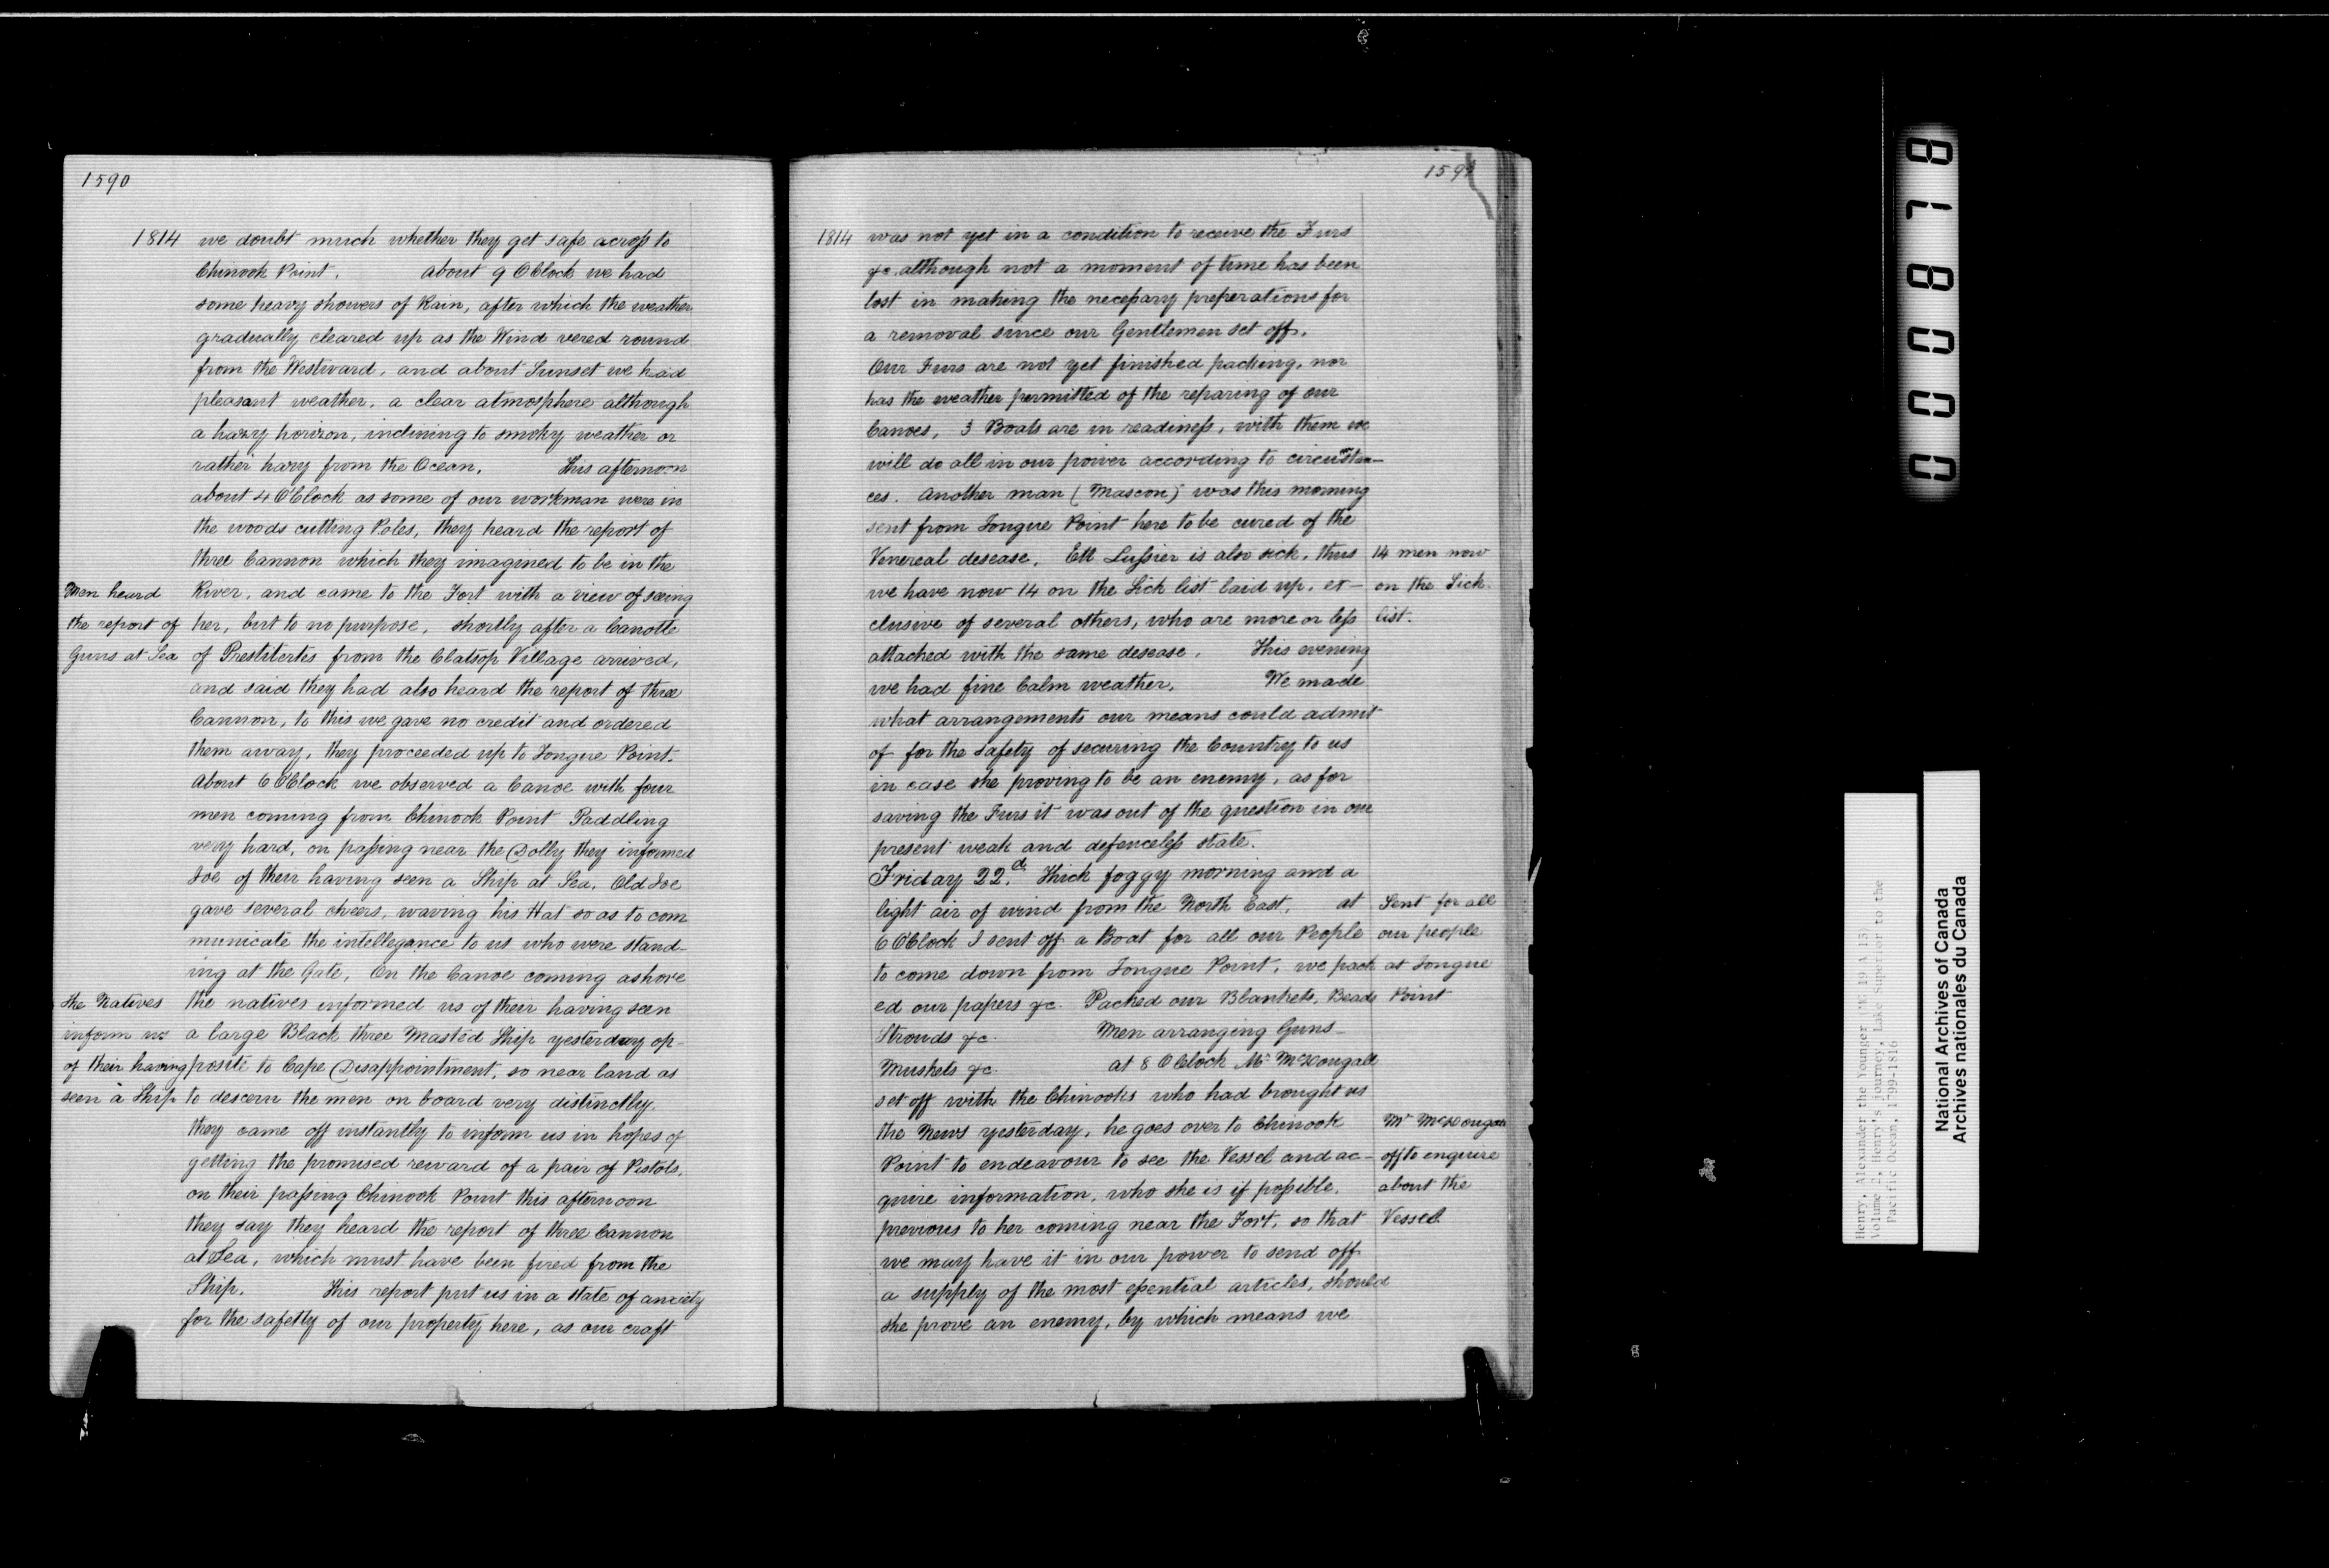 1590
1814 we doubt much whether they get safe across to
Chinook Point. about 9 OClock we had
some heavy showers of Rain, after which the weather
gradually cleared up as the Wind vered round
from the Westward, and about Sunset we had
pleasant weather. a clear atmosphere although
a hazy horizon, inclining to smoky weather or
rather hazy from the Ocean. This afternoon
about 4 O'Clock as some of our workman were in
the woods cutting Poles, they heard the report of
three Cannon which they imagined to be in the
River, and came to the Fort with a view of seeing
her, but to no purpose. shortly after a Canotte
of Prestitertes from the Clatsop Village arrived,
and said they had also heard the report of three
Cannon, to this we gave no credit and ordered
them away, they proceeded up to Tongue Point.
About 6 OClock we observed a Canoe with four
men coming from Chinook Point Paddling
very hard, on passing near the Dolly they informed
Joe of their having seen a Ship at Sea. Old Joe
gave several cheers, waving his Hat so as to com
municate the intellegance to us who were stand-
ing at the Gate. On the Canoe coming ashore
the natives informed us of their having seen
a large Black three Masted Ship yesterday op-
posite to Cape Disappointment, so near land as
to descern the men on board very distinctly.
they came off instantly to inform us in hopes of
getting the promised reward of a pair of Pistols.
on their passing Chinook Point this afternoon
they say they heard the report of three Cannon
at Sea, which must have been fired from the
Ship. This report put us in a state of anxiety
for the safetty of our property here, as our craft
Men heard
the report of
Guns at Sea
The Natives
inform us
of their having
seen a Ship
1814 was not yet in a condition to receive the Furs
&c. although not a moment of time has been
lost in making the necessary preperations for
a removal since our Gentlemen set off.
Our Furs are not yet finished packing, nor
has the weather permitted of the reparing of our
Canoes, 3 Boats are in readiness, with them we
will do all in our power according to circumstan-
ces. Another man (Mascon) was this morning
sent from Tongue Point here to be cured of the
Venereal desease. Ett Lussier is also sick. thus
we have now 14 on the Sick list laid up. ex-
clusive of several others, who are more or less
attached with the same desease. This evening
we had fine Calm weather. We made
what arrangements our means could admit
of for the safety of securing the Country to us
in case she proving to be an enemy, as for
saving the Furs it was out of the question in our
present weak and defenceless state.
Friday 22.d Thick foggy morning and a
light air of wind from the North East. at
6 O'Clock I sent off a Boat for all our People
to come down from Tongue Point. we pack
ed our papers &c. Packed our Blankets, Beads
Strouds &c. Men arranging Guns-
Muskets &c. at 8 OClock Mr McDougall
set off with the Chinooks who had brought us
the News yesterday, he goes over to Chinook
Point to endeavour to see the Vessel and ac-
quire information, who she is if possible.
previous to her coming near the Fort. so that
we may have it in our power to send off
a supply of the most essential articles, should
she prove an enemy, by which means we
14 men now
on the Sick
list.
Sent for all
our people
at Tongue
Point
Mr McDougall
off to enquire
about the
Vessel
0000878
Henry, Alexander the Younger (MG 19 A 13)
Volume 2, Henry's journey, Lake Superior to the
Pacific Ocean, 1799-1816
National Archives of Canada
Archives nationales du Canada